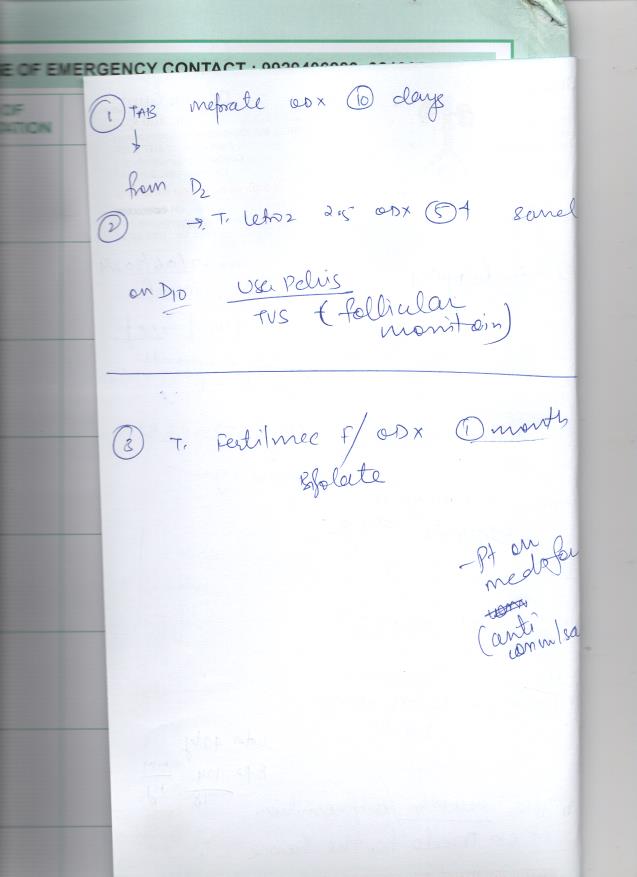 E OF EMERGENCY CONTACT :
OF
ATION
① TAB meprate OD x ⑩ days
↓
from D2
② → T. Letroz 2.5 OD x ⑤ +
on D10 USG Pelvis
TVS (follicular
monitoring)
③ T. Fertilmec F/ OD x ① month
Bfolate
- Pt on
(anti